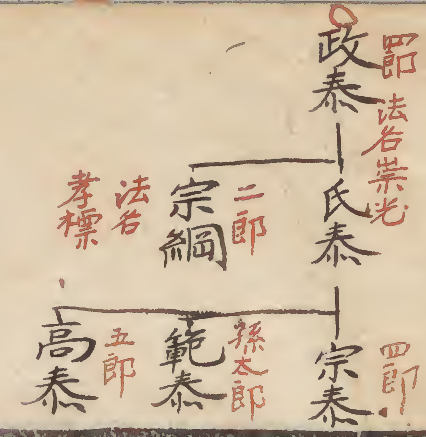 四郎 法名崇光
政泰
氏泰
二郎
宗綱
法名
孝標
四郎
宗泰
孫太郎
範泰
五郎
高泰